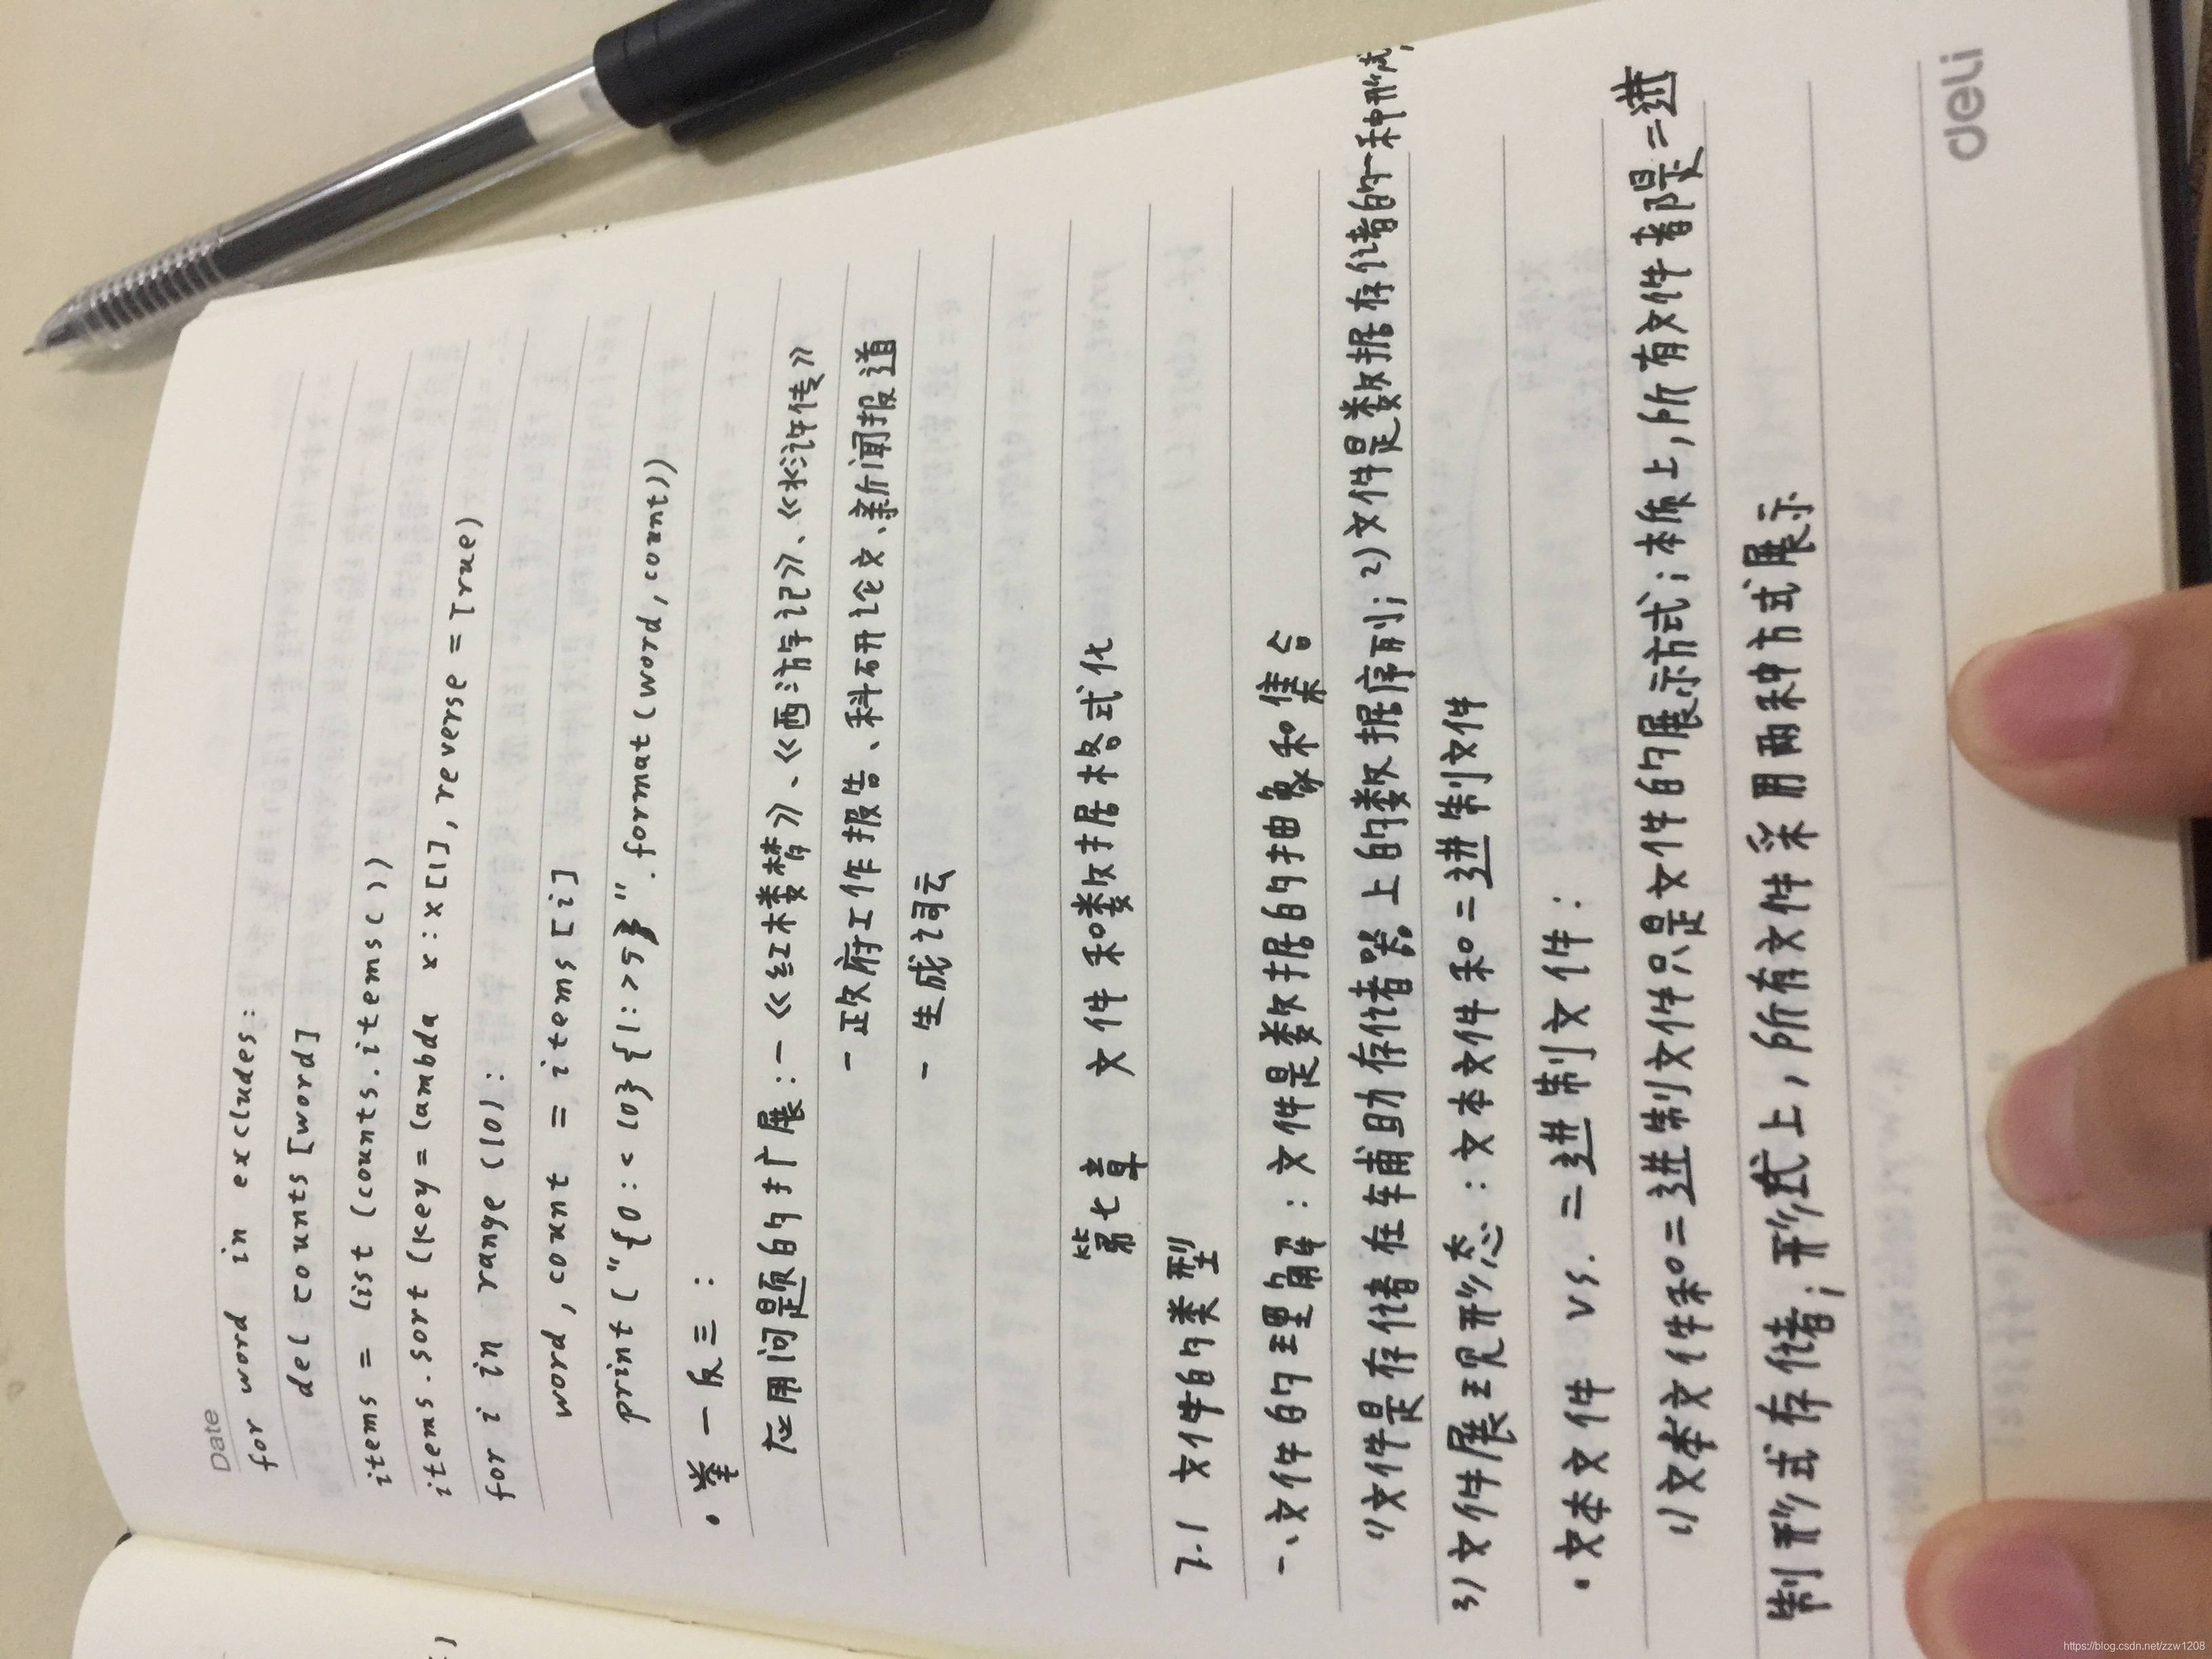 Date
for word in excludes:
del counts[word]
items = list(counts.items())
items.sort(key=lambda x:x[1],reverse=True)
for i in range(10):
word,count = items[i]
print("{0:<10}{1:>5}".format(word,count))
·举一反三:
应用问题的扩展:-《红楼梦》、《西游记》、《水浒传》
-政府工作报告、科研论文、新闻报道
-生成词云
第七章 文件和数据格式化
7.1 文件的类型
一、文件的理解:文件是数据的抽象和集合
1)文件是存储在辅助存储器上的数据序列;2)文件是数据存储的一种形式;
3)文件展现形态:文本文件和二进制文件
·文本文件 vs. 二进制文件:
1)文本文件和二进制文件只是文件的展示方式;本质上,所有文件都是二进
制形式存储;形式上,所有文件采用两种方式展示
deli
https://blog.csdn.net/zzw1208